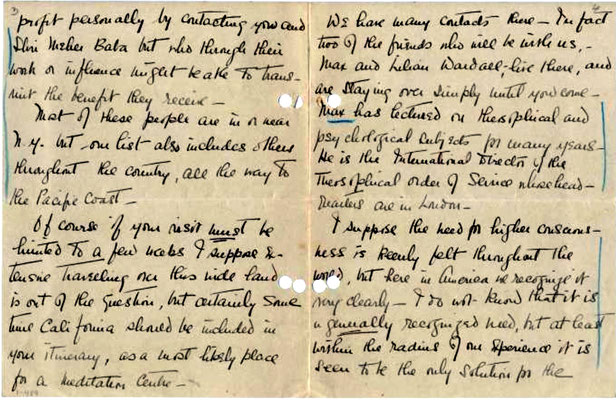 3)
profit personally by contacting you and
Shri Meher Baba but who through their
work or influence might be able to trans-
mit the benefit they receive —
Most of these people are in or near
N.Y. but our list also includes others
throughout the country, all the way to
the Pacific Coast —
Of course if your visit must be
limited to a few weeks I suppose ex-
tensive traveling over this wide land
is out of the question, but certainly some
time California should be included in
your itinerary, as a most likely place
for a meditation Centre —
4
We have many contacts there — In fact
two of the friends who will be with us, —
Max and Lilian Wardall, live there, and
are staying over simply until you come —
Max has lectured on theosophical and
psychological subjects for many years —
He is the International Director of the
Theosophical order of Service whose head-
quarters are in London —
I suppose the need for higher conscious-
ness is keenly felt throughout the
world, but here in America we recognize it
very clearly — I do not know that it is
a generally recognized need, but at least
within the radius of our experience it is
seen to be the only solution for the